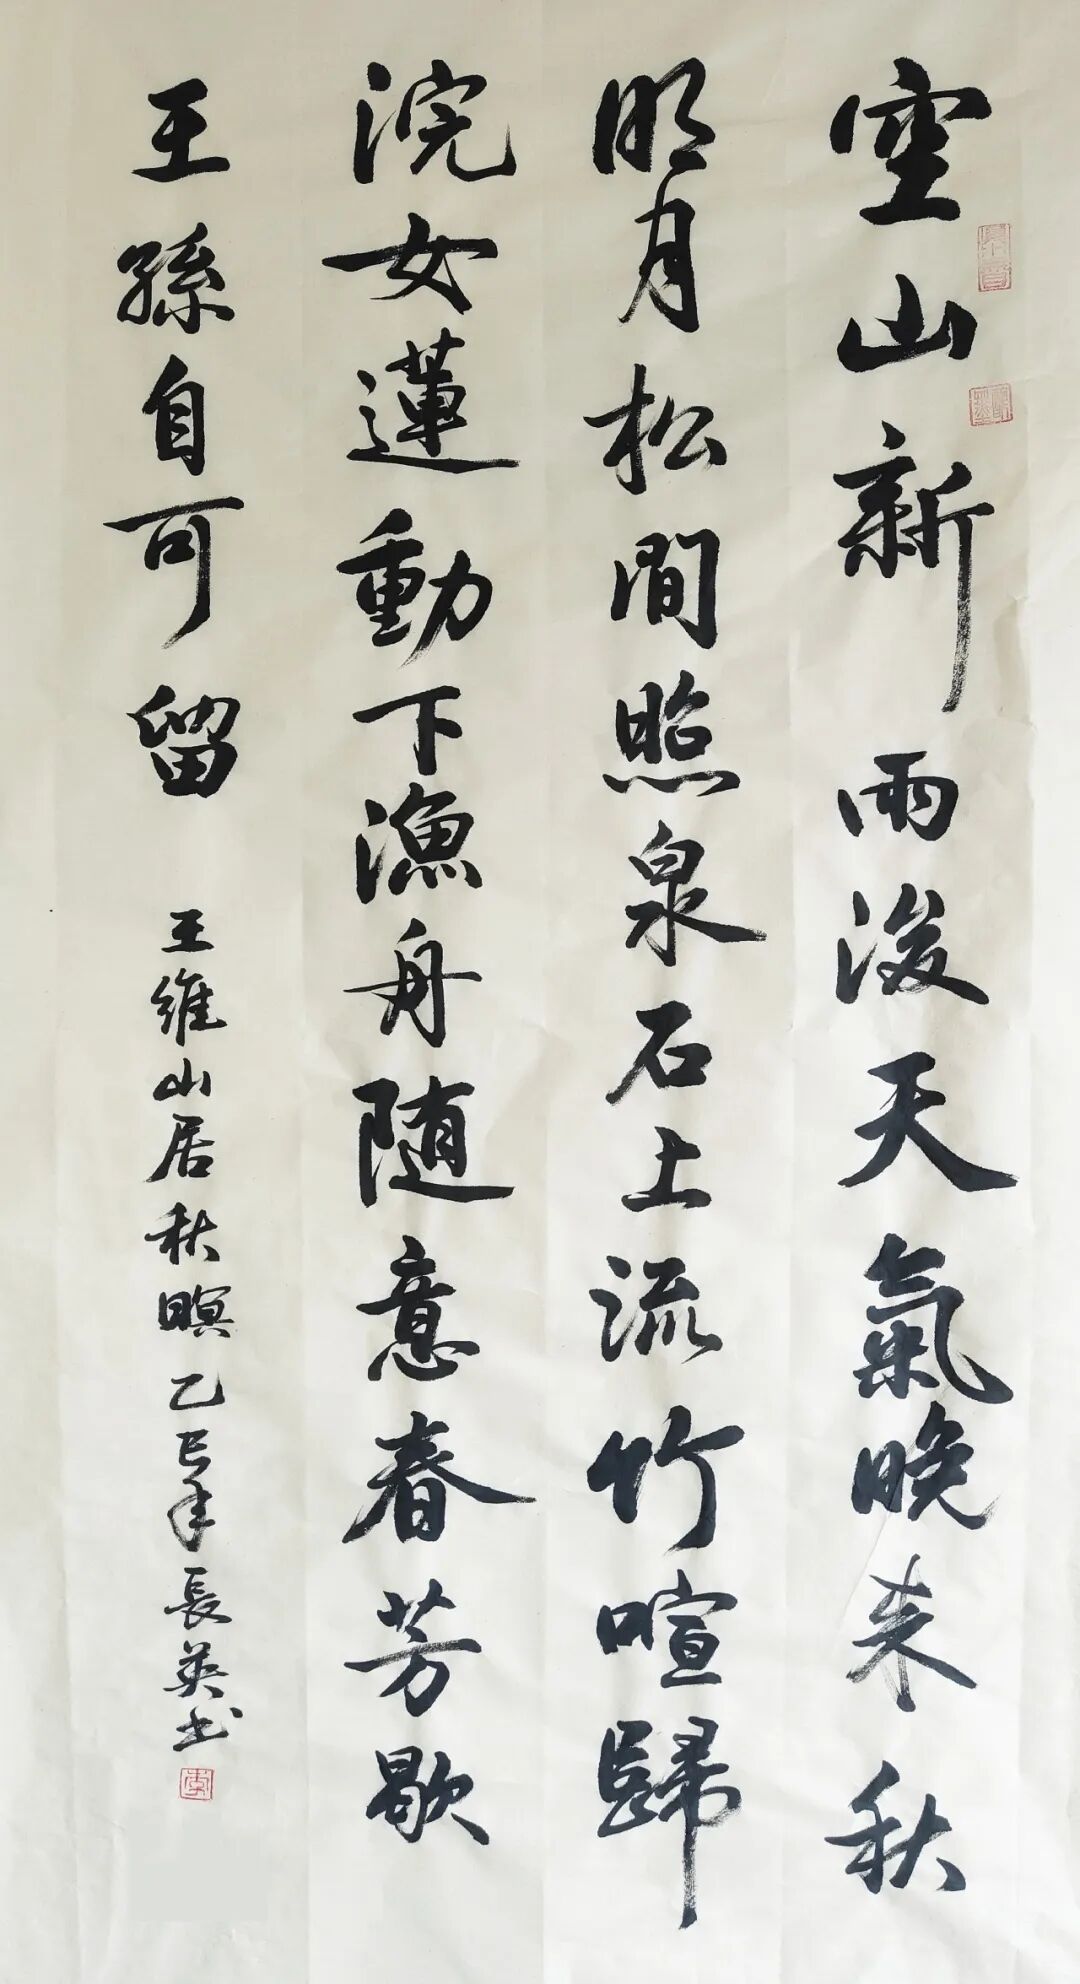 空山新雨後天氣晚来秋
明月松間照泉石上流竹喧歸
浣女蓮動下漁舟随意春芳歇
王孫自可留
王維山居秋暝乙巳年長英书
李